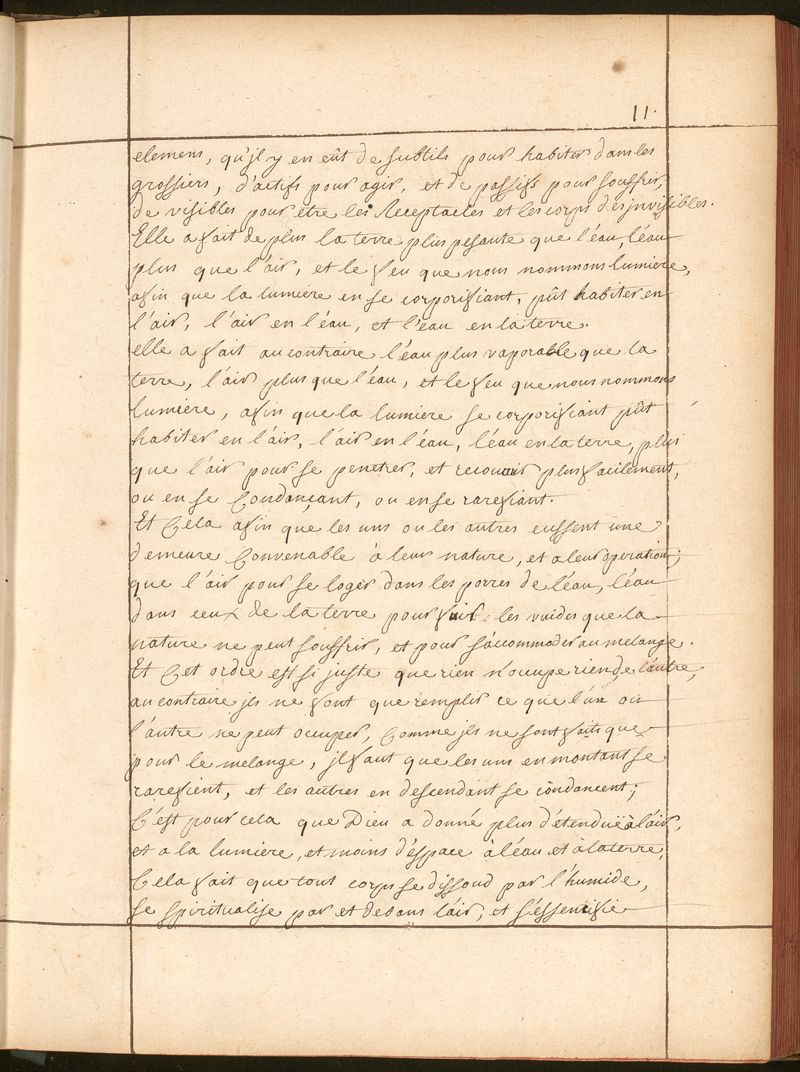 11.
elemens, qu'jl y en eût de subtils pour habiter dans les
grossiers, d'actifs pour agir, et de passifs pour souffrir,
de visibles pour être les Receptacles et les corps des jnvisibles.
Elle a fait de plus la terre plus pesante que l'éau, l'éau
plus que l'air, et le feu que nous nommons lumiere,
afin que la lumiere en se corporifiant, pût habiter en
l'air, l'air en l'éau, et l'eau en la terre.
elle a fait au contraire l'éau plus vaporable que la
terre, l'air plus que l'éau, et le feu que nous nommons
lumiere, afin que la lumiere se corporifiant pût
habiter en l'air, l'air en l'éau, l'éau en la terre, plus
que l'air pour se penetrer, et recevoir plus facilement,
ou en se Condançant, ou en se rarefiant.
Et Cela afin que les uns ou les autres eussent une
demeure Convenable à leur nature, et a leur operation;
que l'air pour se loger dans les porres de l'éau, l'éau
dans ceux de la terre pour fuir les vuides que la
nature ne peut souffrir, et pour s'accommoder au melange.
Et Cet ordre est si juste que rien n'occupe rien de l'autre,
au contraire jls ne font que remplir ce que l'un ou
l'autre ne peut occuper, Comme jls ne sont faits que
pour le melange, jl faut que les uns en montant se
rarefient, et les autres en descendant se condancent;
C'est pour cela que Dieu a donné plus d'étenduë à l'air,
et a la lumiere, et moins d'espace à l'éau et à la terre,
Cela fait que tout corps se dissoud par l'humide,
se spiritualise par et dedans l'air, et s'éssencifie